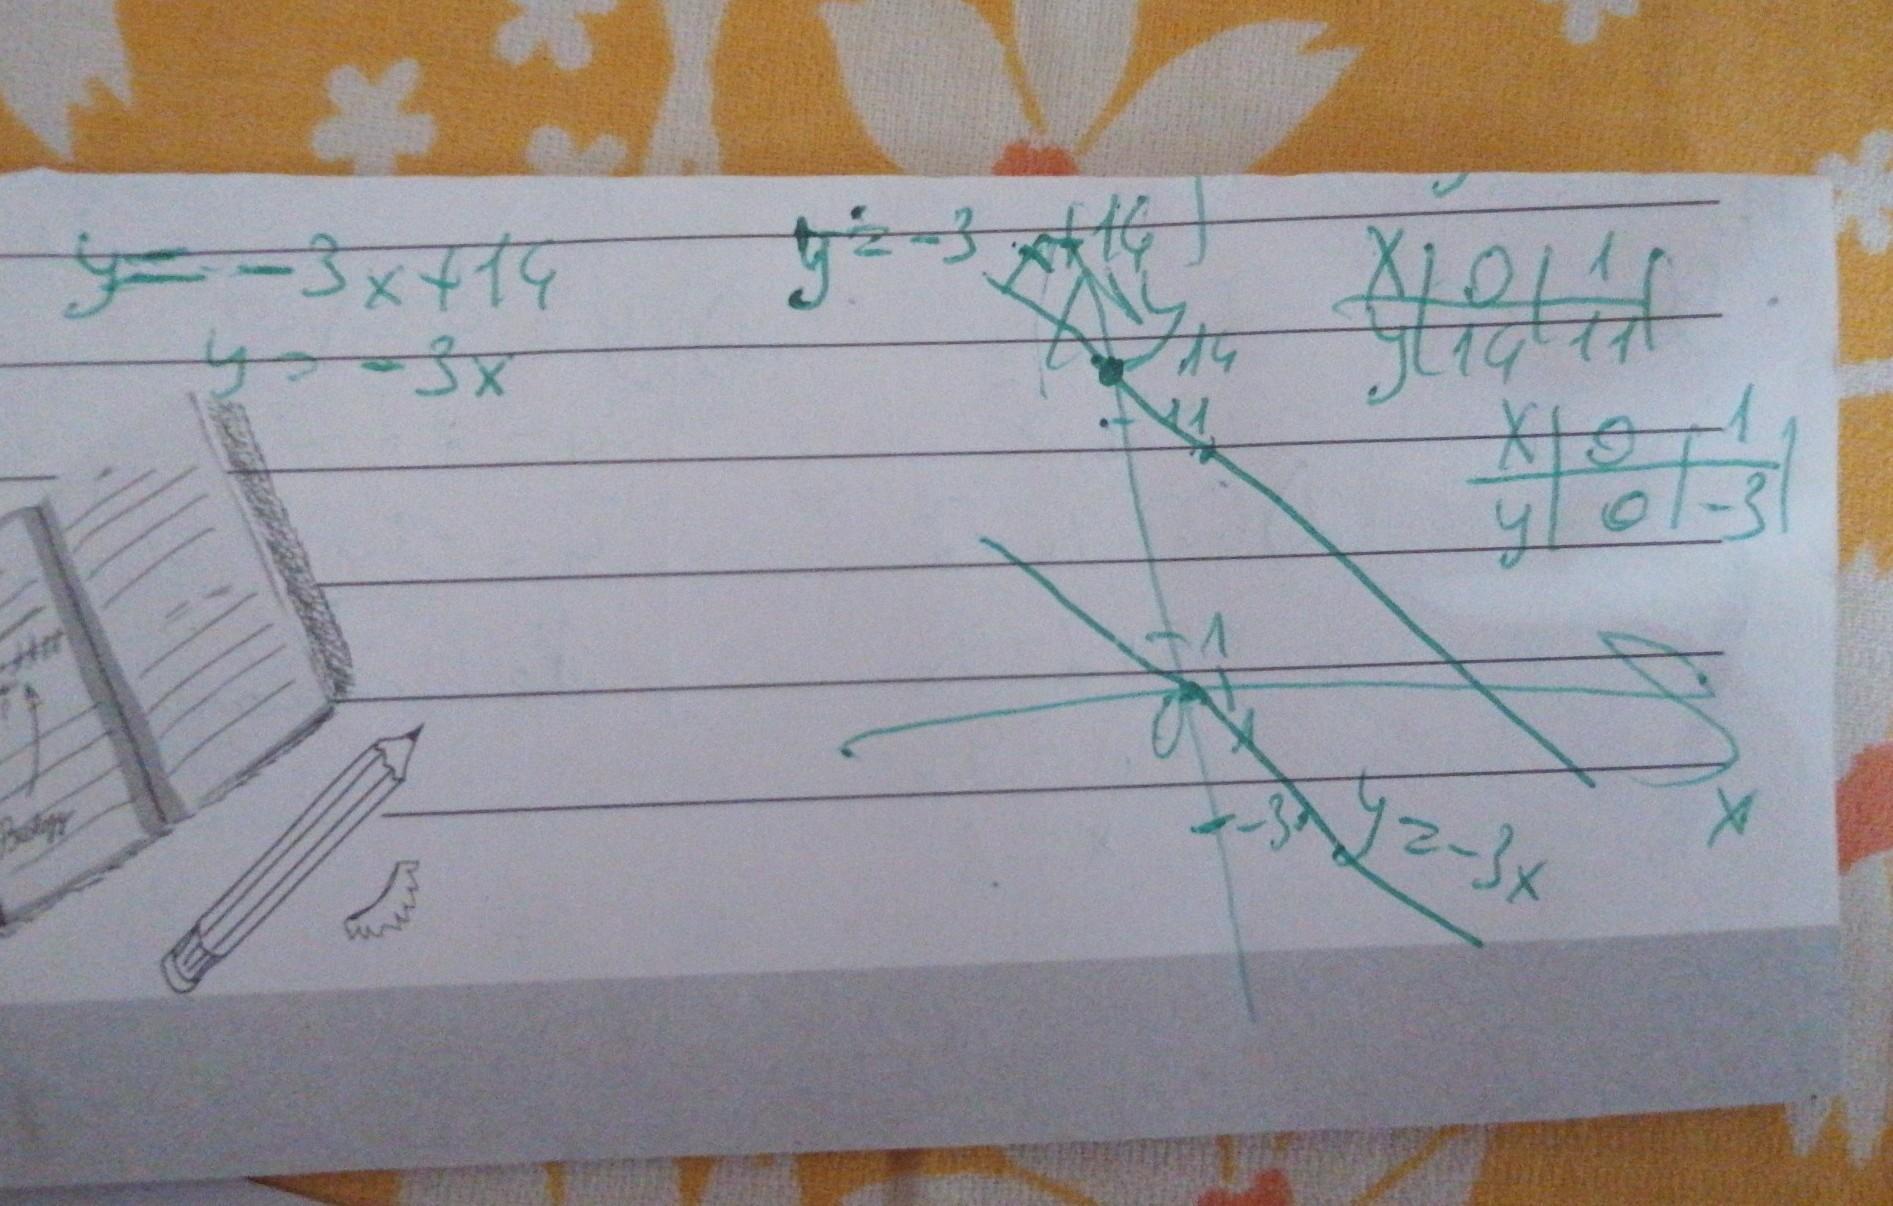 y = -3x+14
y = -3x
y = -3x+14
y
x | 0 | 1 |
y | 14 | 11 |
14
11
x | 0 | 1 |
y | 0 | -3 |
1
0 1
-3
y = -3x
x
Biology